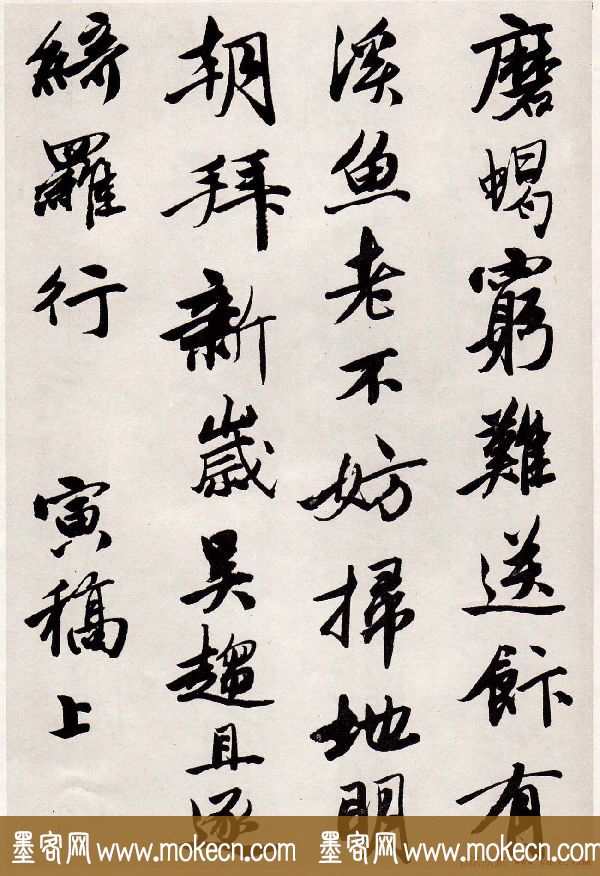 磨蝎窮難送飰有
溪魚老不妨掃地明
朝拜新歲吳趨且逐
綺羅行
寅稿上
墨客网 www.mokecn.com 墨客网 www.mokecn.com